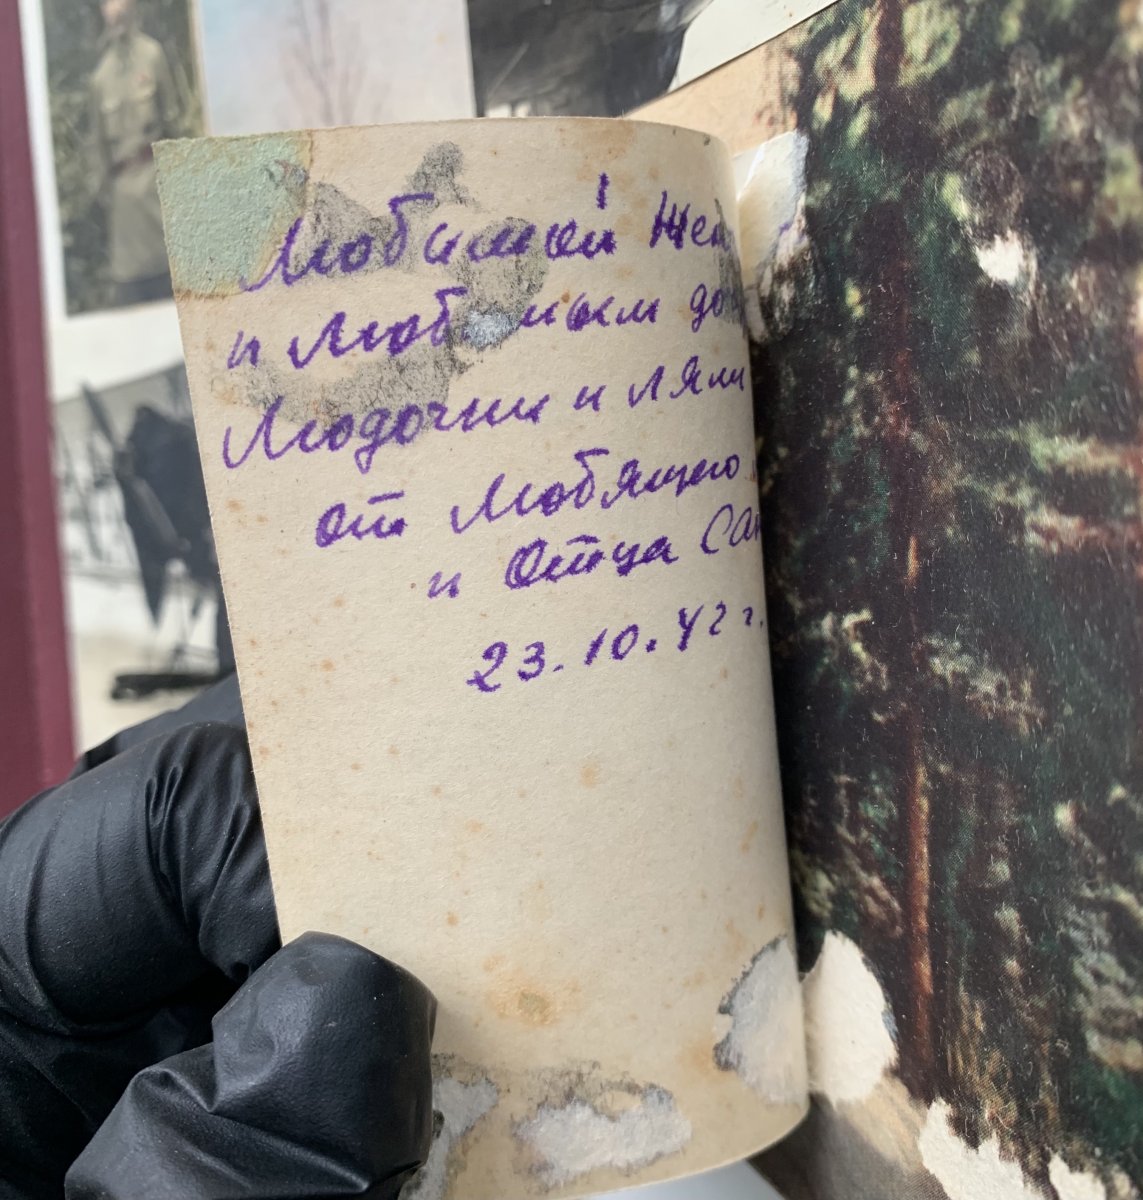 Любимой Жен
и Любимым до
Людочки и Ляли
от Любящего
и Отца Сан
23.10.42 г.